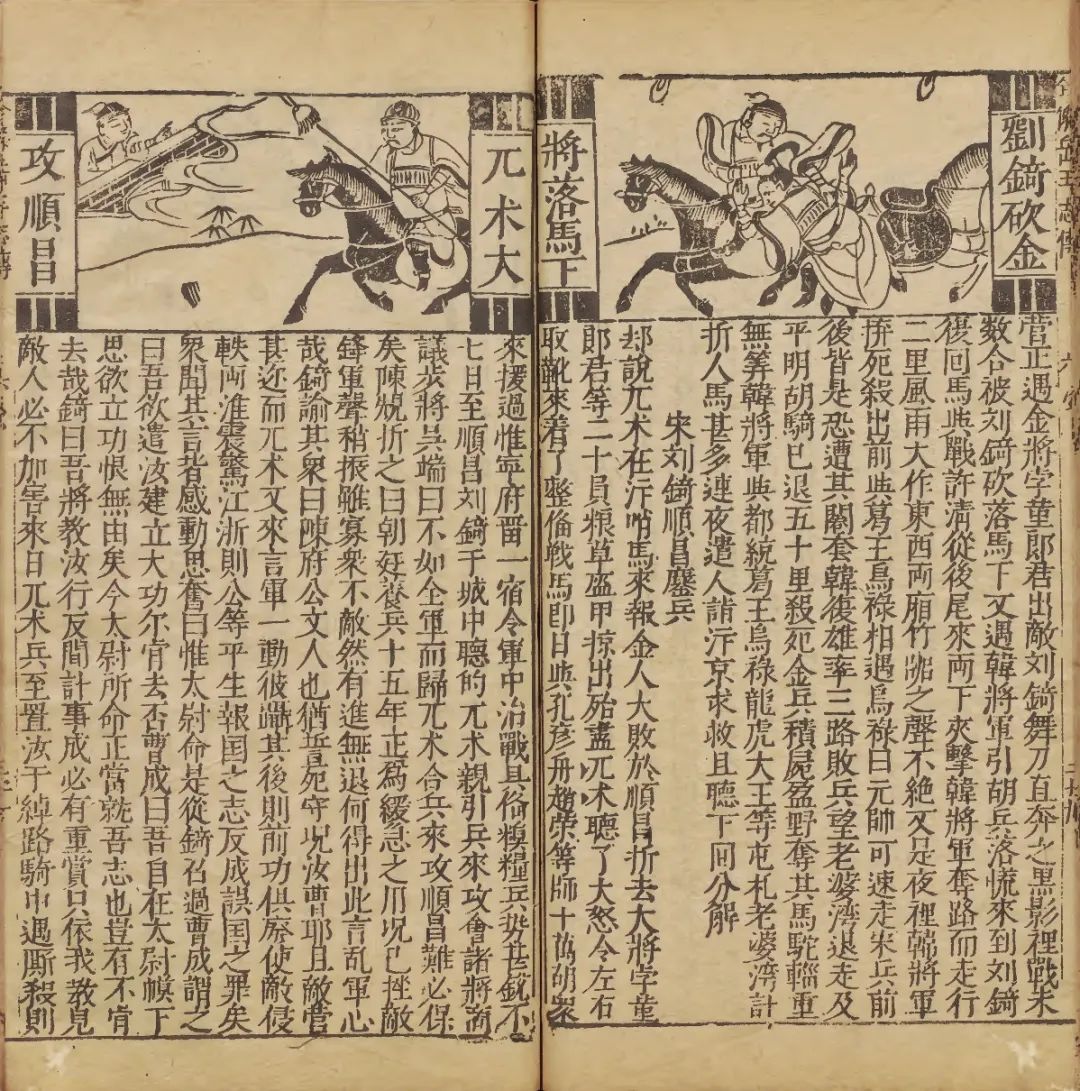 劉錡砍金
將落馬下
营正遇金將孛童郎君出敵刘錡舞刀直奔之黑影裡戰未
数合被刘錡砍落馬下又遇韓將軍引胡兵落慌來到刘錡
復回馬与戰許清從後尾來両下夾擊韓將軍奪路而走行
二里風雨大作東西両廂竹之聲不絕又是夜裡韓將軍
拚死殺出前与葛王烏祿相遇烏祿曰元帥可速走宋兵前
後皆是恐遭其關套韓復雄率三路敗兵望老婆湾退走及
平明胡騎已退五十里殺死金兵積屍盈野奪其馬駝輜重
無筭韓將軍与都統葛王烏祿龍虎大王等屯札老婆湾計
折人馬甚多連夜遣人詣汴京求救且聽下囘分解
宋刘錡順昌鏖兵
却說兀术在汴哨馬來報金人大敗於順昌折去大將孛童
郎君等二十員粮草盔甲掠出殆盡兀术聽了大怒令左右
取靴來着了整備戰馬即日与孔彦舟趙荣等師十萬胡衆
兀术大
攻順昌
來援過惟寧府畱一宿令軍中治戰具俻糗糧兵势甚銳不
七日至順昌刘錡于城中聽的兀术親引兵來攻會諸將商
議步將吳端曰不如全軍而歸兀术合兵來攻順昌難必保
矣陳規折之曰朝廷養兵十五年正為緩急之用况已挫敵
鋒軍聲稍振雖寡衆不敵然有進無退何得出此言乱軍心
哉錡諭其衆曰陳府公文人也猶誓死守况汝曹耶且敵营
甚迩而兀术又來言軍一動彼躡其後則前功俱廢使敵侵
軼両淮震驚江浙則公等平生報国之志反成誤国之罪矣
衆聞其言皆感動思奮曰惟太尉命是從錡召過曹成謂之
曰吾欲遣汝建立大功尔肯去否曹成曰吾自在太尉幙下
思欲立功恨無由矣今太尉所命正當就吾志也豈有不肯
去哉錡曰吾將教汝行反間計事成必有重賞只依我教見
敵人必不加害來日兀术兵至置汝于綽路騎中遇厮殺則